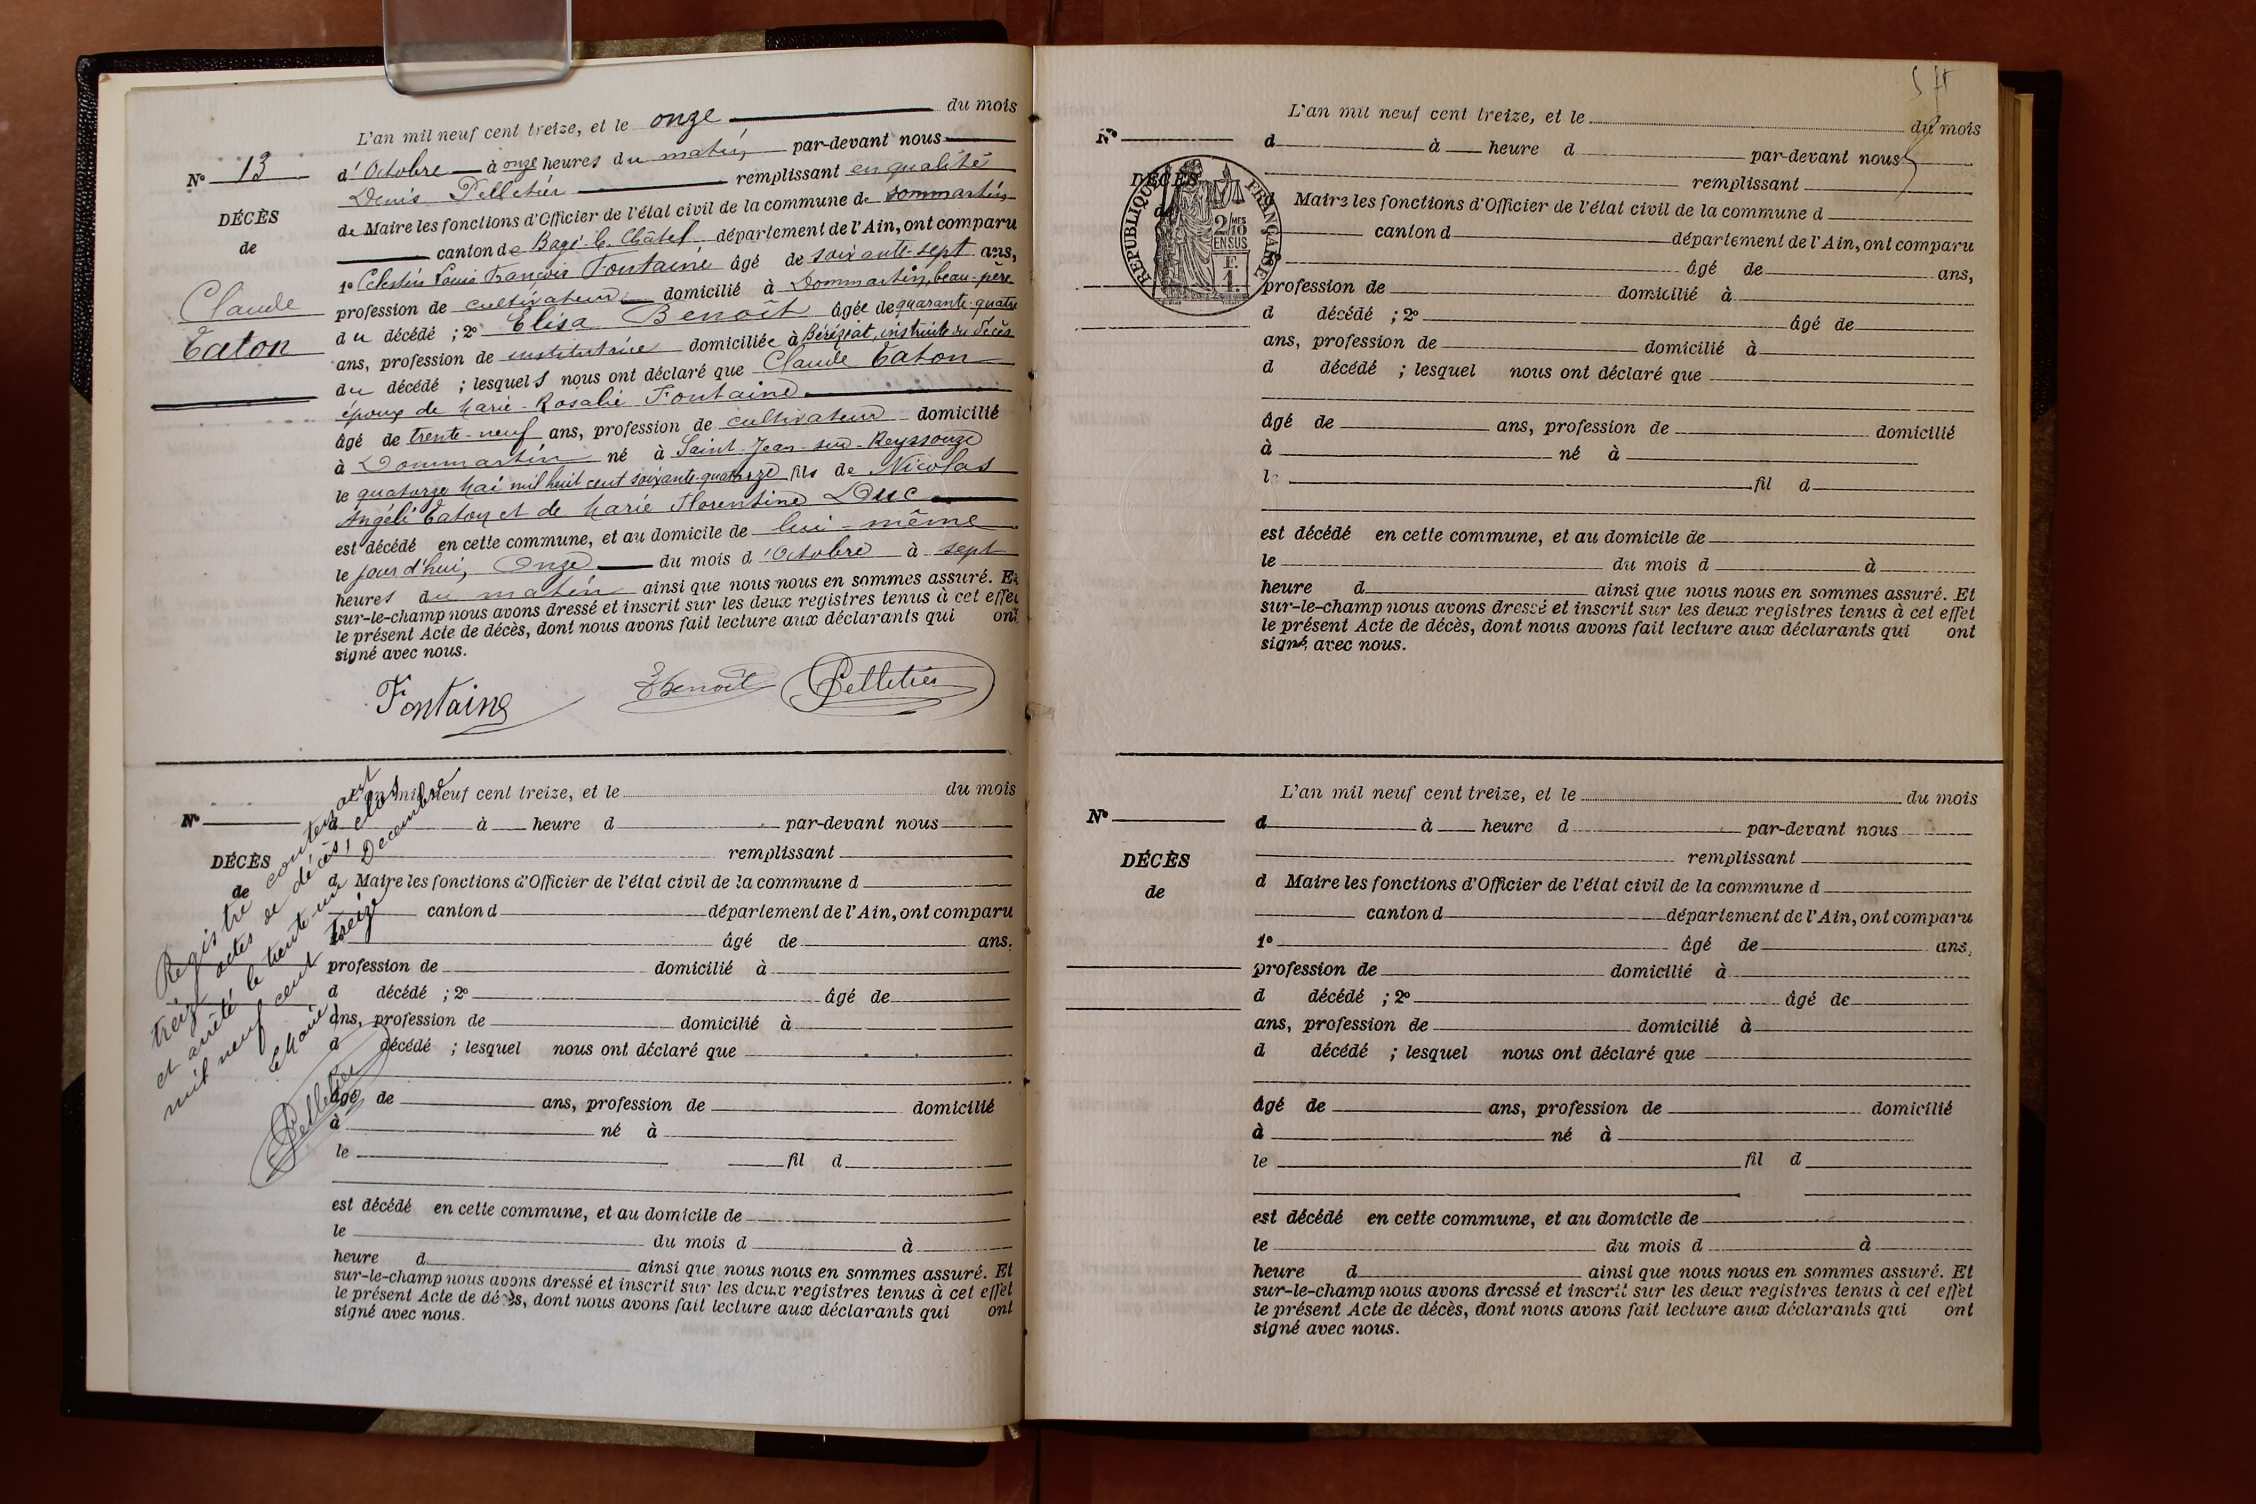 L'an mil neuf cent treize, et le onze du mois
N° 13
d'Octobre à onze heures du matin, par-devant nous
Denis Pelletier remplissant en qualité
DÉCÈS
de
Claude
Taton
de Maire les fonctions d'Officier de l'état civil de la commune de Dommartin,
canton de Bagé-le-Châtel, département de l'Ain, ont comparu
1° Célestin Louis François Fontaine âgé de soixante-sept ans,
profession de cultivateur domicilié à Dommartin, beau-père
du décédé ; 2° Elisa Benoît âgée de quarante-quatre
ans, profession de institutrice domiciliée à Béréziat, instruite du décès
du décédé ; lesquels nous ont déclaré que Claude Taton
époux de Marie-Rosalie Fontaine
âgé de trente-neuf ans, profession de cultivateur domicilié
à Dommartin né à Saint-Jean-sur-Reyssouze
le quatorze Mai mil huit cent soixante-quatorze fils de Nicolas
Angéli Taton et de Marie Florentine Duc
est décédé en cette commune, et au domicile de lui-même
le jour d'hui, Onze du mois d'Octobre à sept
heures du matin ainsi que nous nous en sommes assuré. Et
sur-le-champ nous avons dressé et inscrit sur les deux registres tenus à cet effet
le présent Acte de décès, dont nous avons fait lecture aux déclarants qui ont
signé avec nous.
Fontaine EBenoît Pelletier
L'an mil neuf cent treize, et le du mois
N°
d à heure d par-devant nous
remplissant
DÉCÈS
de
d Maire les fonctions d'Officier de l'état civil de la commune d
canton d département de l'Ain, ont comparu
1° âgé de ans,
profession de domicilié à
d décédé ; 2° âgé de
ans, profession de domicilié à
d décédé ; lesquel nous ont déclaré que
âgé de ans, profession de domicilié
à né à
le fil d
est décédé en cette commune, et au domicile de
le du mois d à
heure d ainsi que nous nous en sommes assuré. Et
sur-le-champ nous avons dressé et inscrit sur les deux registres tenus à cet effet
le présent Acte de décès, dont nous avons fait lecture aux déclarants qui ont
signé avec nous.
Registre contenant
treize actes de décès, clos
et arrêté le trente-un Decembre
mil neuf cent treize
Le Maire
Pelletier
L'an mil neuf cent treize, et le du mois
N°
d à heure d par-devant nous
remplissant
DÉCÈS
de
RÉPUBLIQUE FRANÇAISE
2/10 MES
EN SUS
F.
1.
d Maire les fonctions d'Officier de l'état civil de la commune d
canton d département de l'Ain, ont comparu
âgé de ans,
profession de domicilié à
d décédé ; 2° âgé de
ans, profession de domicilié à
d décédé ; lesquel nous ont déclaré que
âgé de ans, profession de domicilié
à né à
le fil d
est décédé en cette commune, et au domicile de
le du mois d à
heure d ainsi que nous nous en sommes assuré. Et
sur-le-champ nous avons dressé et inscrit sur les deux registres tenus à cet effet
le présent Acte de décès, dont nous avons fait lecture aux déclarants qui ont
signé avec nous.
L'an mil neuf cent treize, et le du mois
N°
d à heure d par-devant nous
remplissant
DÉCÈS
de
d Maire les fonctions d'Officier de l'état civil de la commune d
canton d département de l'Ain, ont comparu
1° âgé de ans,
profession de domicilié à
d décédé ; 2° âgé de
ans, profession de domicilié à
d décédé ; lesquel nous ont déclaré que
âgé de ans, profession de domicilié
à né à
le fil d
est décédé en cette commune, et au domicile de
le du mois d à
heure d ainsi que nous nous en sommes assuré. Et
sur-le-champ nous avons dressé et inscrit sur les deux registres tenus à cet effet
le présent Acte de décès, dont nous avons fait lecture aux déclarants qui ont
signé avec nous.